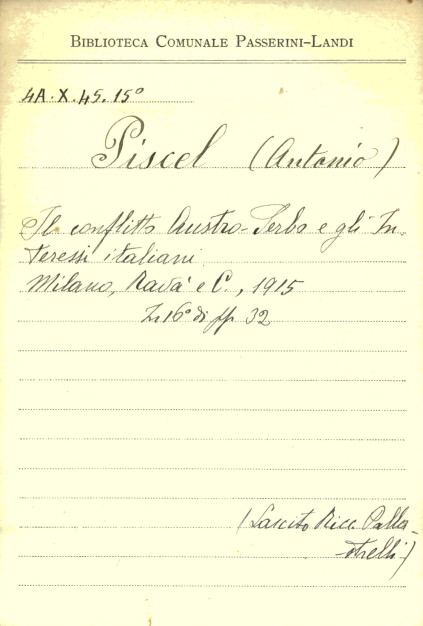 BIBLIOTECA COMUNALE PASSERINI-LANDI
4A.X.45.15°
Piscel (Antonio)
Il conflitto Austro-Serbo e gli In-
teressi italiani
Milano, Ravà e C., 1915
In 16° di pp 32
(Lascito Ricc. Palla-
strelli)